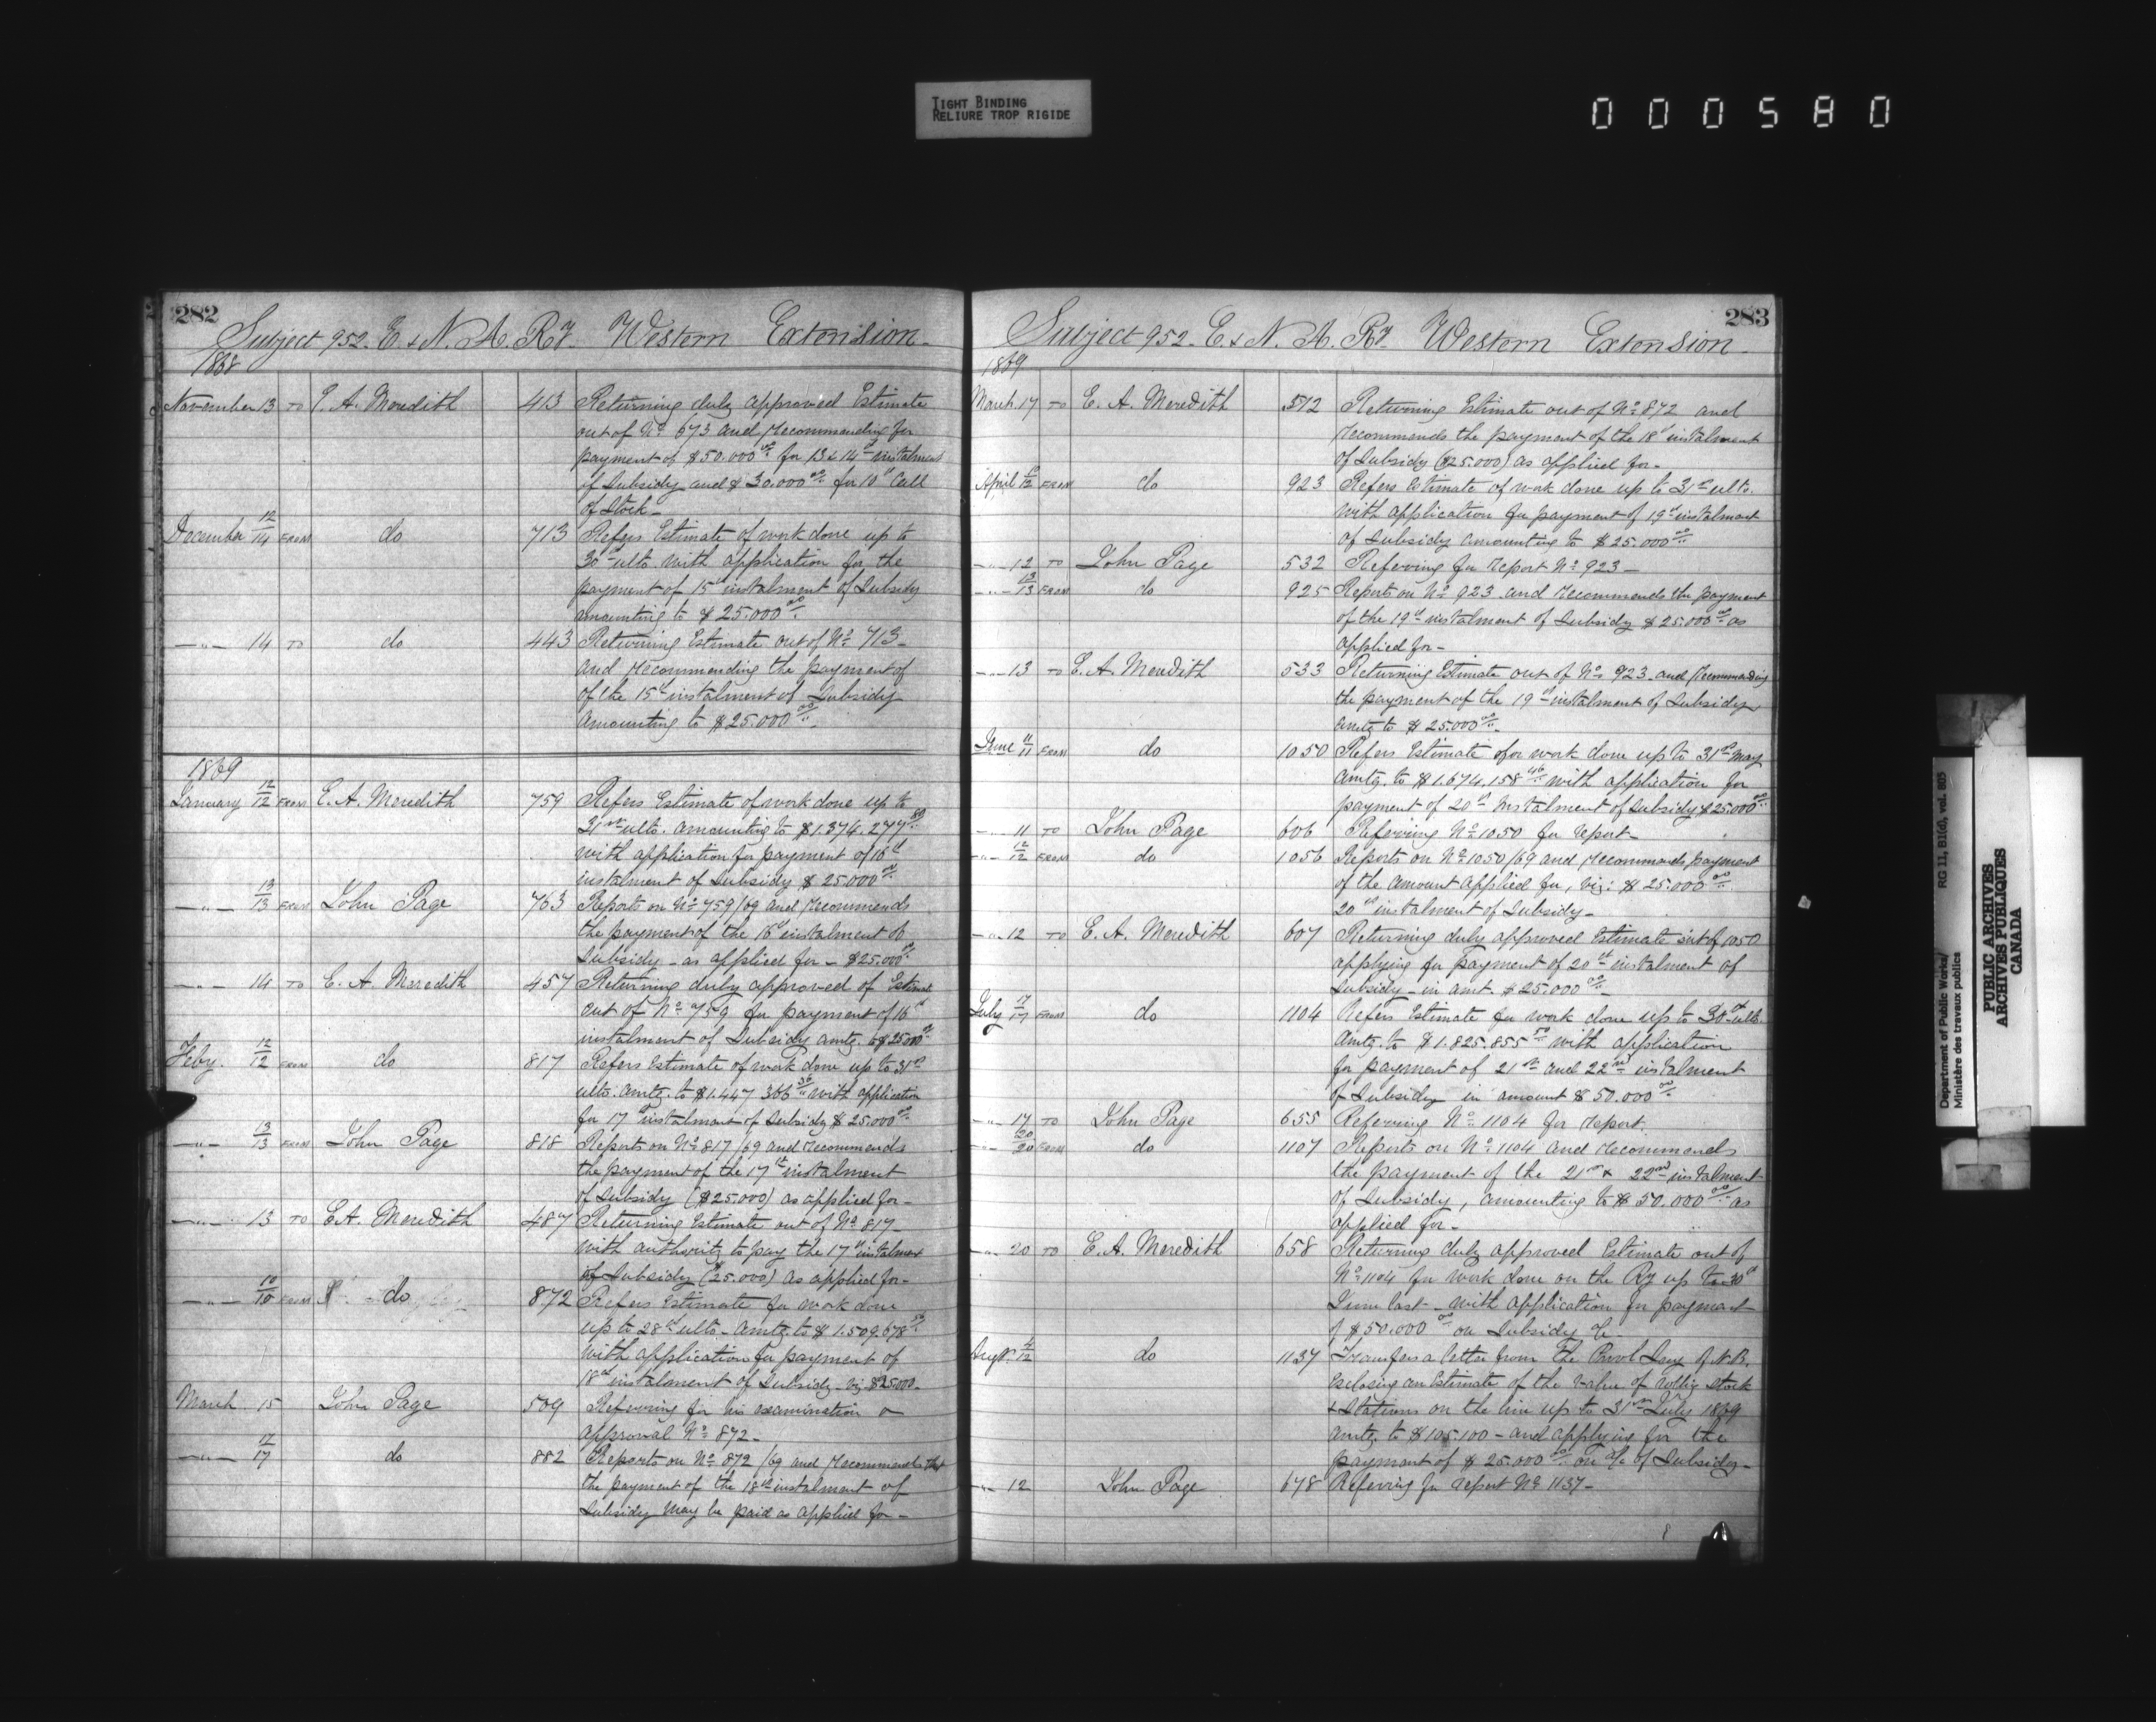 TIGHT BINDING
RELIURE TROP RIGIDE
000580
282
Subject 952. E. & N. A. Ry. Western Extension
1868
November 13 TO E. A. Meredith 413 Returning duly approved Estimate
out of No 673 and recommending for
payment of $50.000 00 for 13 & 14th instalment
of Subsidy and $30.000 00 for 10th Call
of Stock
December 12/14 FROM do 713 Refers Estimate of work done up to
30th ulto. with application for the
payment of 15th instalment of Subsidy
amounting to $25.000 00
-"- 14 TO do 443 Returning Estimate out of No 713
and recommending the payment of
of the 15th instalment of Subsidy
amounting to $25.000 00
1869
January 12/12 FROM E. A. Meredith 759 Refers Estimate of work done up to
31st ulto. amounting to $1.374.277
with application for payment of 16th
instalment of Subsidy $25.000 00
-"- 13/13 FROM John Page 763 Reports on No 759/69 and recommends
the payment of the 16th instalment of
Subsidy - as applied for - $25.000 00
-"- 14 TO E. A. Meredith 457 Returning duly approved of Estimate
out of No 759 for payment of 16th
instalment of Subsidy amtg. to $25.000 00
Feby. 12/12 FROM do 817 Refers Estimate of work done up to 31st
ulto. amtg. to $1.447.366 36 with application
for 17th instalment of Subsidy $25.000 00
-"- 13/13 FROM John Page 818 Reports on No 817/69 and recommends
the payment of the 17th instalment
of Subsidy ($25.000) as applied for -
-"- 13 TO E. A. Meredith 487 Returning Estimate out of No 817
with authority to pay the 17th instalment
of Subsidy ($25.000) as applied for -
-"- 10/10 FROM do 872 Refers Estimate for work done
up to 28th ulto - amtg. to $1.509.678
with application for payment of
18th instalment of Subsidy - viz $25.000
March 15 John Page 509 Referring for his examination &
approval No 872 -
-"- 17/17 do 882 Reports on No 872/69 and recommends that
the payment of the 18th instalment of
Subsidy may be paid as applied for -
283
Subject 952. E. & N. A. Ry. Western Extension
1869
March 17 TO E. A. Meredith 512 Returning Estimate out of No 872 and
recommends the payment of the 18th instalment
of Subsidy ($25.000) as applied for -
April 10/12 FROM do 923 Refers Estimate of work done up to 31st ulto.
with application for payment of 19th instalment
of Subsidy amounting to $25.000 00
-"- 12 TO John Page 532 Referring for report No 923 -
-"- 13/13 FROM do 925 Reports on No 923 and recommends the payment
of the 19th instalment of Subsidy $25.000 00 as
applied for -
-"- 13 TO E. A. Meredith 533 Returning Estimate out of No 923 and recommending
the payment of the 19th instalment of Subsidy
amtg to $25.000 00
June 11/11 FROM do 1050 Refers Estimate for work done up to 31st May
amtg. to $1.674.158 46 with application for
payment of 20th instalment of Subsidy $25.000 00
-"- 11 TO John Page 606 Referring No 1050 for report -
-"- 12/12 FROM do 1056 Reports on No 1050/69 and recommends payment
of the amount applied for, viz: $25.000 00
20th instalment of Subsidy -
-"- 12 TO E. A. Meredith 607 Returning duly approved Estimate out of 1050
applying for payment of 20th instalment of
Subsidy - in amt. $25.000 00
July 17/17 FROM do 1104 Refers Estimate for work done up to 30th ulto
amtg. to $1.825.855 50 with application
for payment of 21st and 22nd instalment
of Subsidy in amount $50.000 00
-"- 17 TO John Page 655 Referring No 1104 for report.
-"- 20/20 FROM do 1107 Reports on No 1104 and recommends
the payment of the 21st & 22nd instalment
of Subsidy, amounting to $50.000 00 as
applied for -
-"- 20 TO E. A. Meredith 658 Returning duly approved Estimate out of
No 1104 for work done on the Ry up to 30th
June last - with application for payment
of $50.000 00 on Subsidy a/c -
Augt. 4/12 do 1137 Transfers a letter from the Provl Secy of N.B.
Enclosing an Estimate of the value of rolling stock
& Stations on the line up to 31st July 1869
amtg. to $105.100 - and applying for the
payment of $25.000 00 on a/c of Subsidy -
-"- 12 John Page 678 Referring for report No 1137 -
Department of Public Works/
Ministère des travaux publics
RG 11, B1(d), vol. 805
PUBLIC ARCHIVES
ARCHIVES PUBLIQUES
CANADA